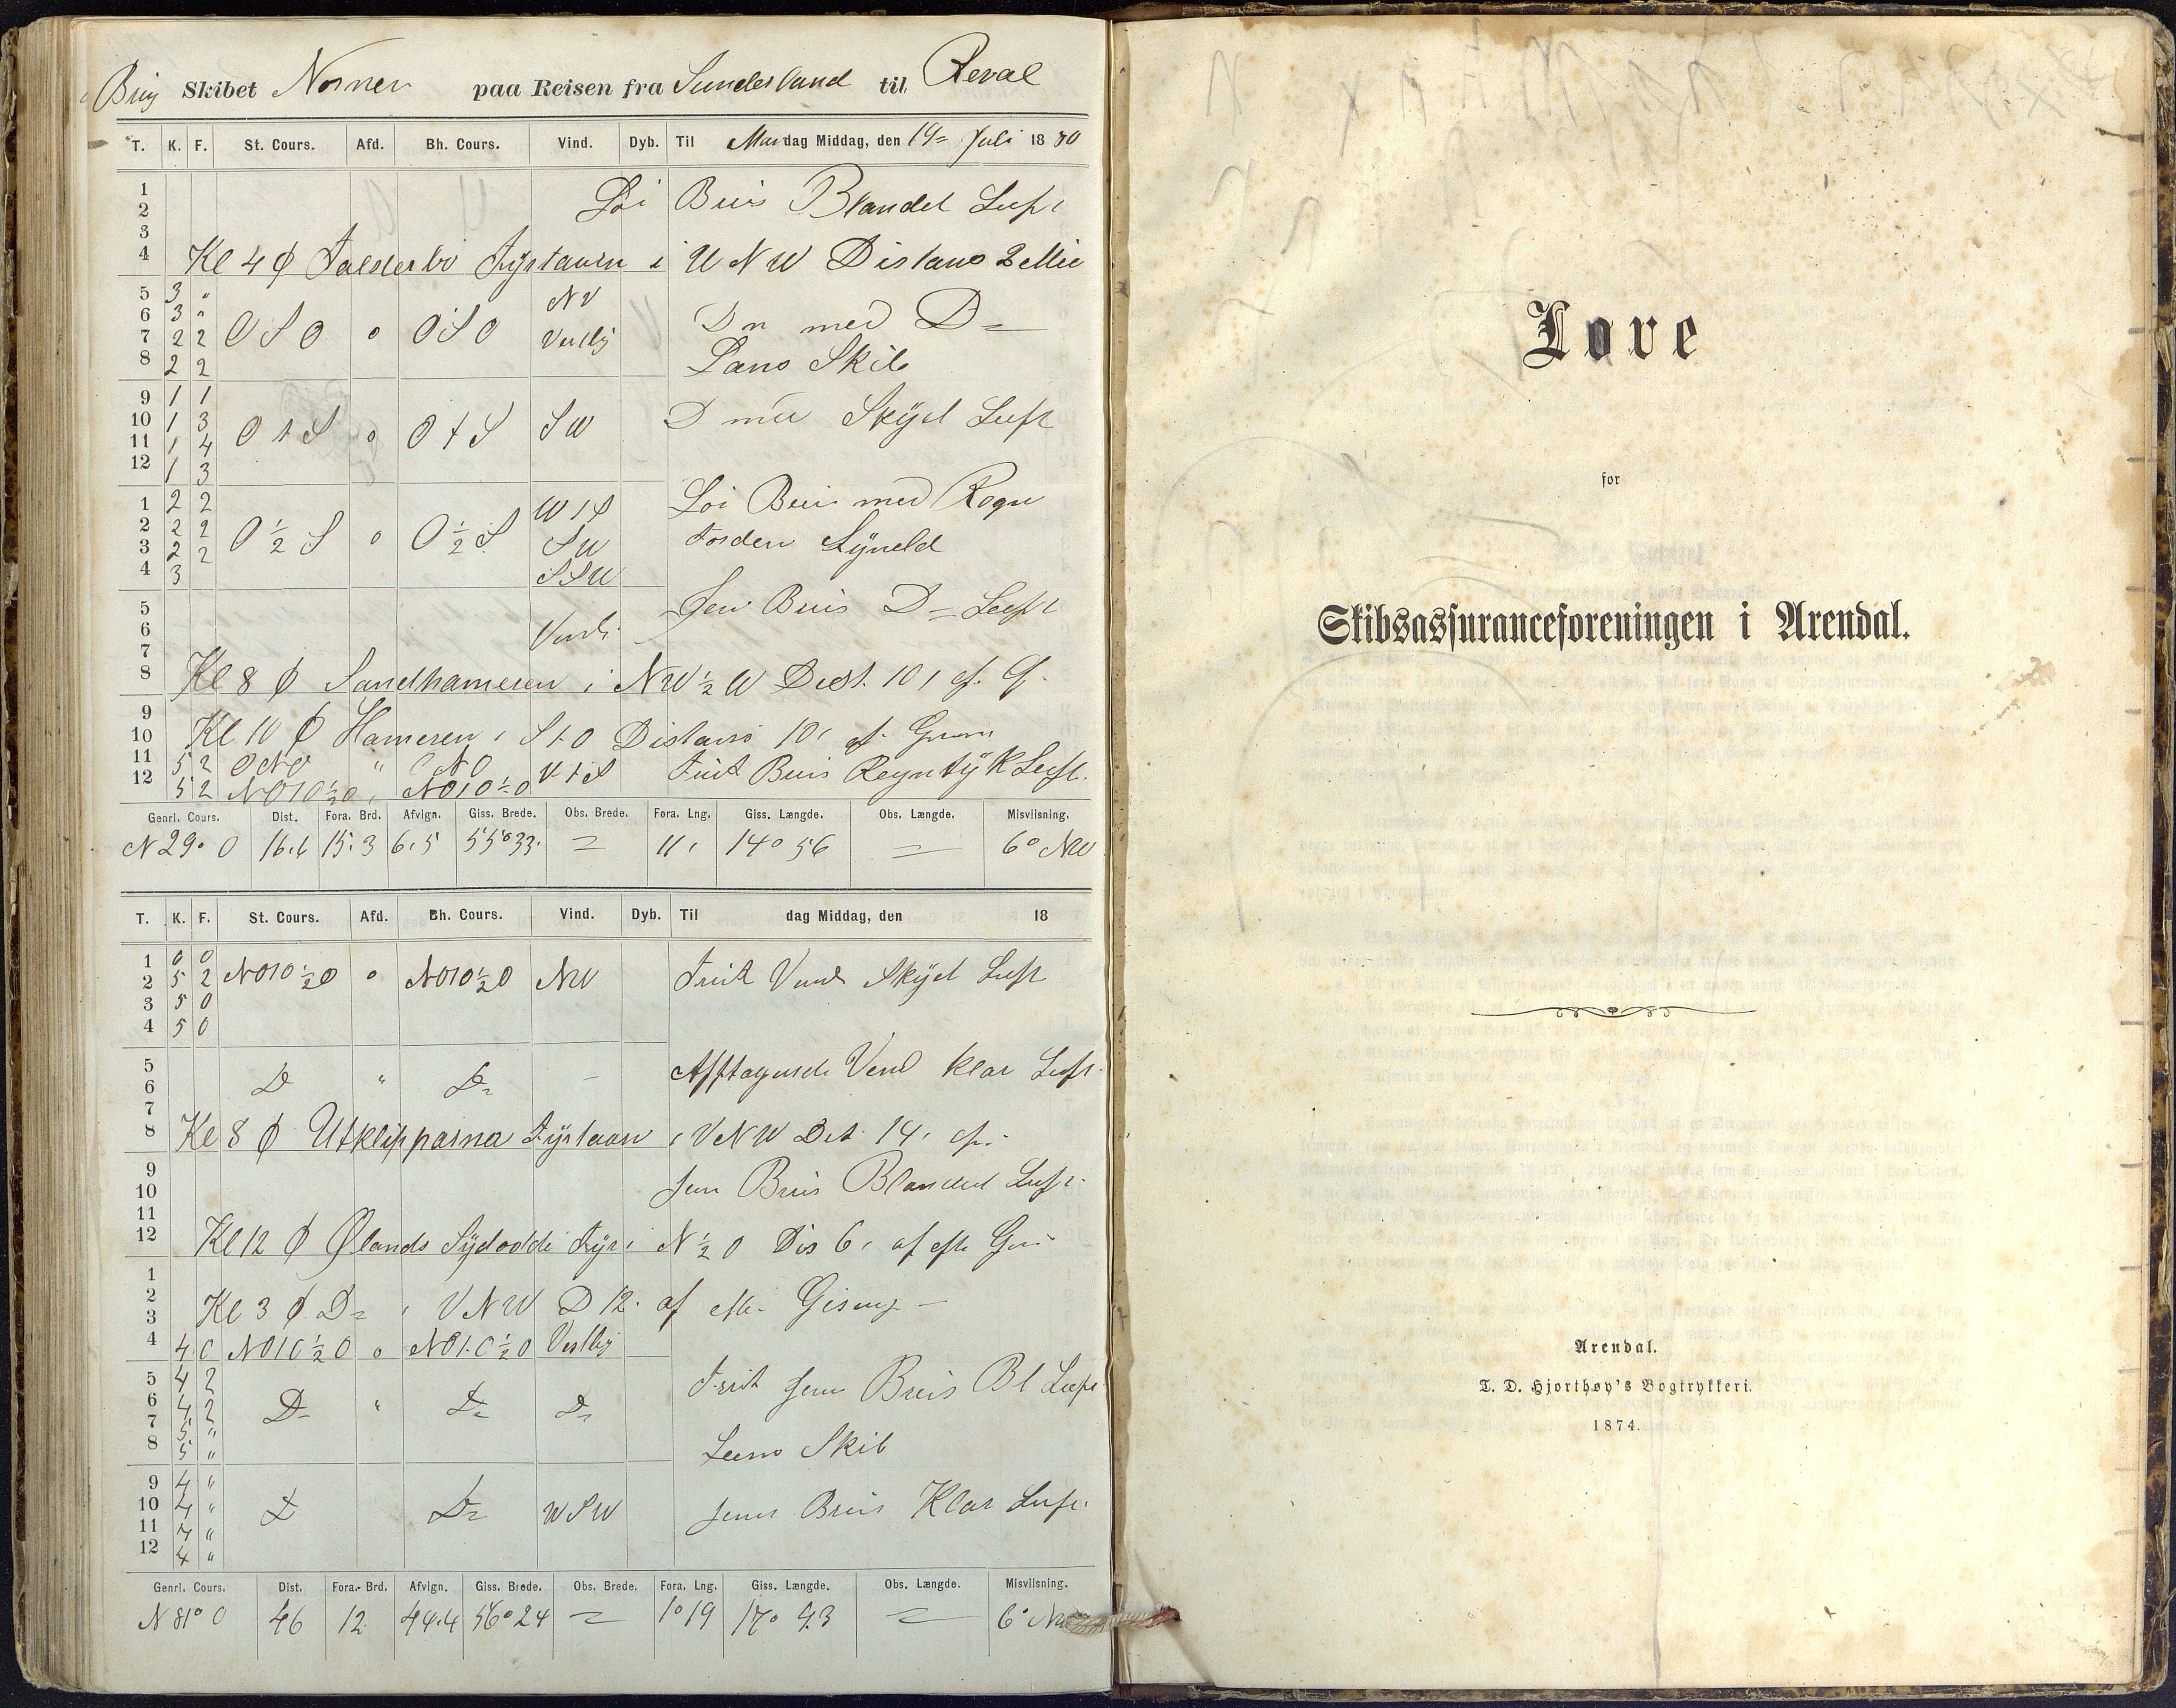 Brig Skibet Norner paa Reisen fra Sunderland til Reval
T. K. F. St. Cours. Afd. Bh. Cours. Vind. Dyb. Til Mandag Middag, den 19= Juli 18 80
1 Löi Bris Blandet Luft
2
3
4 Kl 4 ₵ Falsterbo Fyrtaarn i UNW Distans 2 Mil
5 3 " NV
6 3 " OSO o OSO Dn med D=
7 2 2 Vestlig
8 2 2 Lans Skib
9 1 1
10 1 3 O t S o O t S SW D med Skyet Luft
11 1 4
12 1 3
1 2 2 W t S Löi Bris med Regn
2 2 2 O ½ S o O ½ S SW Torden Lyneld
3 2 2
4 3 SSW
5 Jevn Bris D= Luft
6
7
8 Kl 8 ₵ Sandhameren i NW ½ W Dist. 10
9
10 Kl 10 ₵ Hameren i S t O Distans 10
11 5 2 ONO " ONO V t S Frisk Bris Regntyk Luft.
12 5 2 NOtO ½ O NOtO ½ O
Genrl. Cours. Dist. Fora. Brd. Afvign. Giss. Brede. Obs. Brede. Fora. Lng. Giss. Længde. Obs. Længde. Misviisning.
N 29° O 16.6 15.3 6.5 55°33. = 11 14° 56 = 6° NW
T. K. F. St. Cours. Afd. Bh. Cours. Vind. Dyb. Til dag Middag, den 18
1 0 0
2 5 2 NOtO ½ O o NOtO ½ O NW Frisk Vind Skyet Luft
3 5 0
4 5 0
5 D " D= Afftagende Vind klar Luft.
6
7
8 Kl 8 ₵ Utklipparna Fyrtaarn i VNW Dist 14
9 Jevn Bris Blandet Luft.
10
11
12 Kl 12 ₵ Ølands Sydodde Fyr i N ½ O Dis 6 af efter
1
2
3 Kl 3 ₵ D= i VNW D 12. af efter Gisning
4 4 0 NOtO ½ O o NOtO ½ O Vestlig
5 4 2 Frisk Jevn Bris Bl Luft.
6 4 2 D= " D= D=
7 5 "
8 5 " Lens Skib
9 4 "
10 4 " D D= WSW Jevn Bris Klar Luft.
11 4 "
12 4 "
Genrl. Cours. Dist. Fora. Brd. Afvign. Giss. Brede. Obs. Brede. Fora. Lng. Giss. Længde. Obs. Længde. Misviisning.
N 81° O 46 12 44.4 56°24 = 1°19 17° 43 = 6°
Love
for
Skibsassuranceforeningen i Arendal.
Arendal.
T. D. Hjorthøy's Bogtrykkeri.
1874.